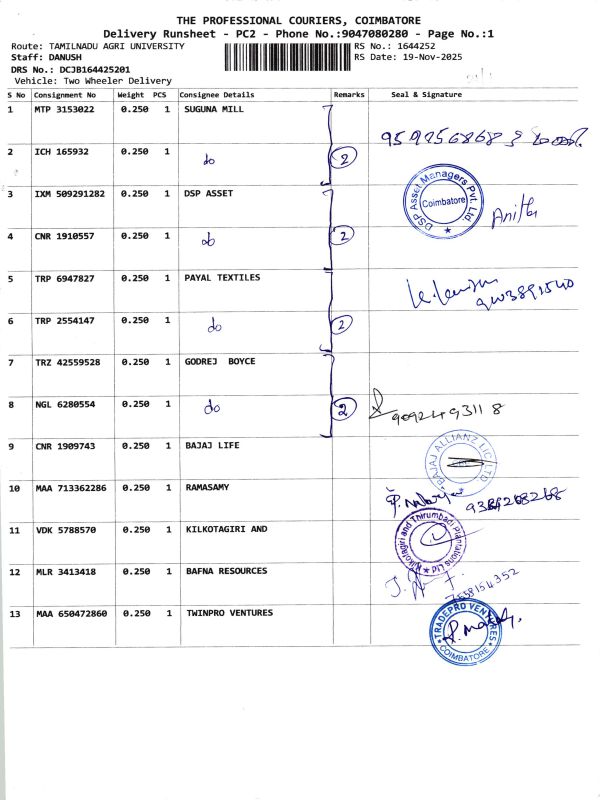 THE PROFESSIONAL COURIERS, COIMBATORE
Delivery Runsheet - PC2 - Phone No.:9047080280 - Page No.:1
Route: TAMILNADU AGRI UNIVERSITY RS No.: 1644252
Staff: DANUSH RS Date: 19-Nov-2025
DRS No.: DCJB164425201
Vehicle: Two Wheeler Delivery
S No Consignment No Weight PCS Consignee Details Remarks Seal & Signature
1 MTP 3153022 0.250 1 SUGUNA MILL
2 ICH 165932 0.250 1 do 2
3 IXM 509291282 0.250 1 DSP ASSET
DSP Asset Managers Pvt. Ltd.
Coimbatore
Anitha
4 CNR 1910557 0.250 1 do 2
5 TRP 6947827 0.250 1 PAYAL TEXTILES
6 TRP 2554147 0.250 1 do 2
7 TRZ 42559528 0.250 1 GODREJ BOYCE
8 NGL 6280554 0.250 1 do 2
9092493118
9 CNR 1909743 0.250 1 BAJAJ LIFE
BAJAJ ALLIANZ LIC LTD
10 MAA 713362286 0.250 1 RAMASAMY
11 VDK 5788570 0.250 1 KILKOTAGIRI AND
Kilkotagiri and Thirumbadi Plantations Ltd
12 MLR 3413418 0.250 1 BAFNA RESOURCES
13 MAA 650472860 0.250 1 TWINPRO VENTURES
TRADEPRO VENTURES
COIMBATORE